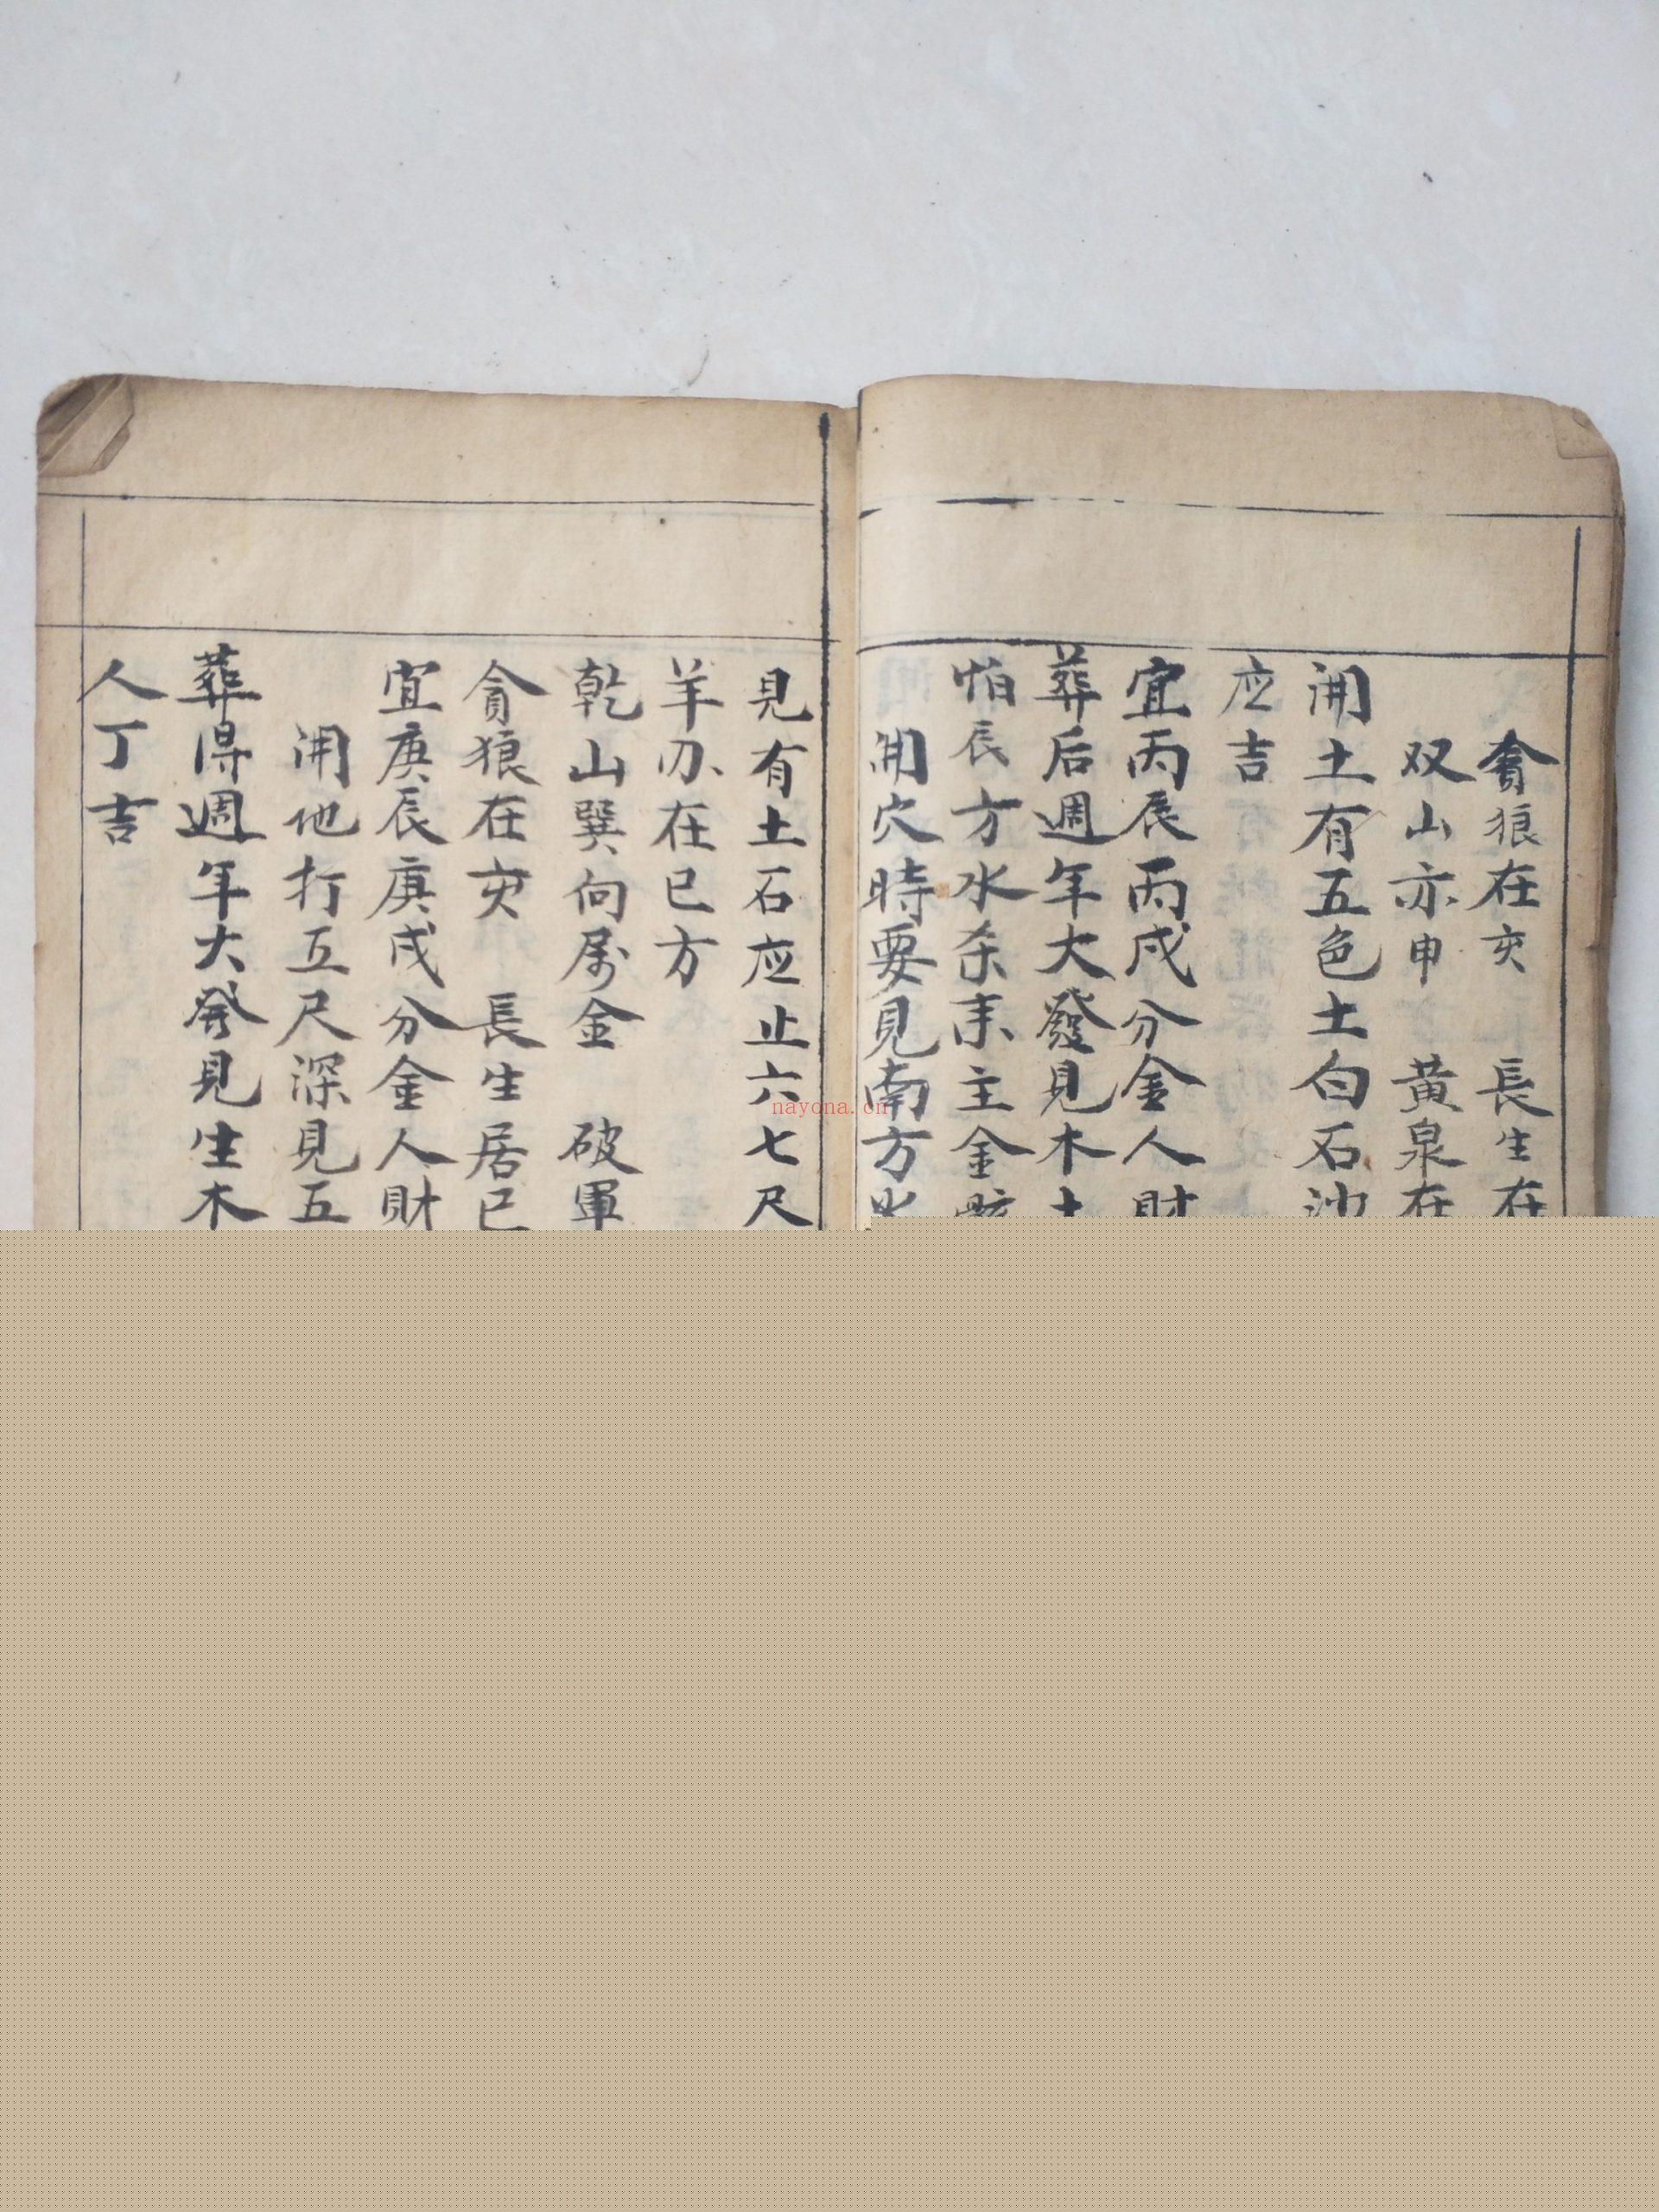 貪狼在亥　長生在
双山亦申　黃泉在
開土有五色土白石沙
应吉
宜丙辰丙戌分金人財
葬后週年大發見木土
怕辰方水杀耒主金
開穴時要見南方
見有土石应止六七尺
羊刃在巳方
乾山巽向屬金　破軍
貪狼在亥　長生居巳
宜庚辰庚戌分金人財
開他打五尺深見五
葬得週年大発見生木
人丁吉
nayona.cn